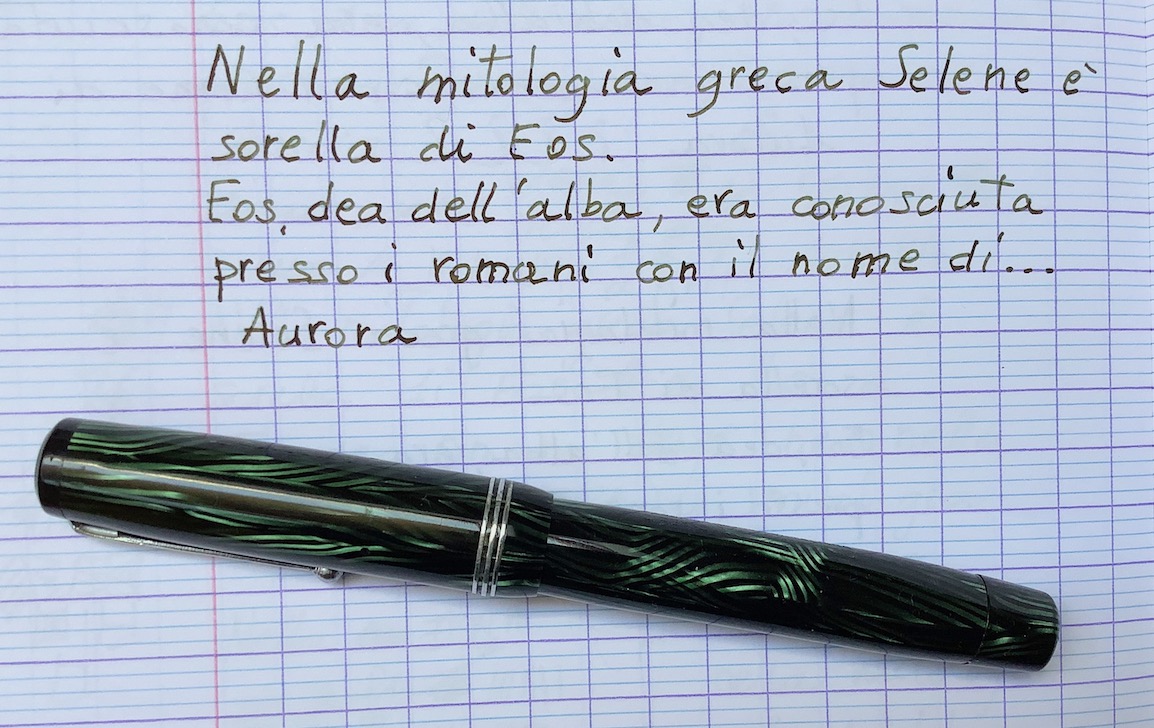 Nella mitologia greca Selene è
sorella di Eos.
Eos, dea dell'alba, era conosciuta
presso i romani con il nome di...
Aurora